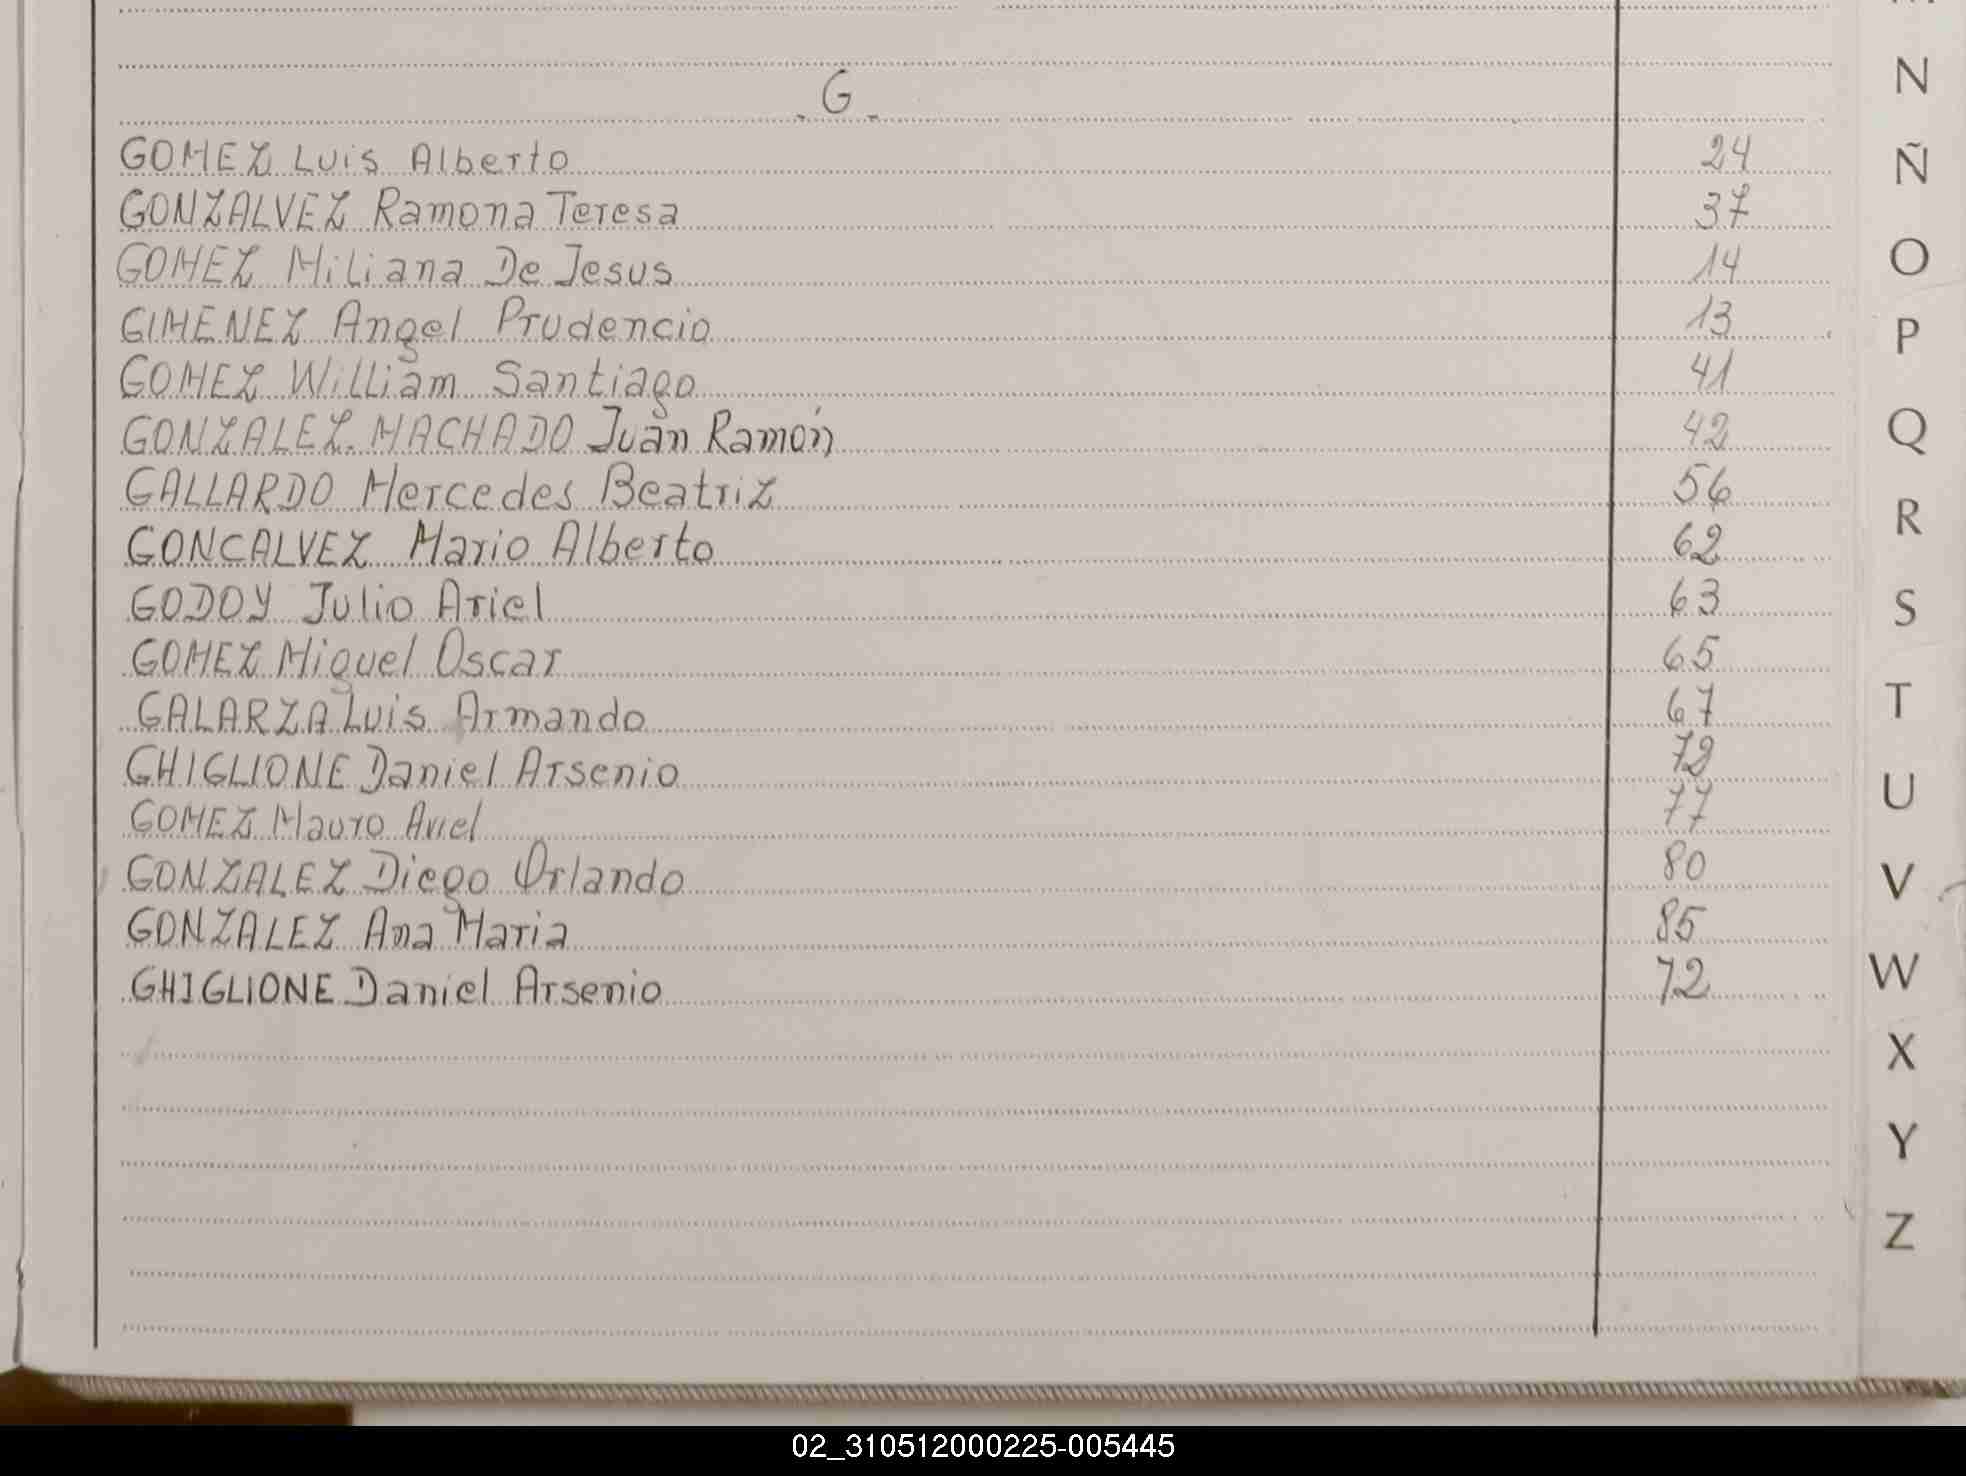 N
G
GOMEZ Luis Alberto 24
Ñ
GONZALVEZ Ramona Teresa 37
GOMEZ Miliana De Jesus 14
O
GIMENEZ Angel Prudencio 13
P
GOMEZ William Santiago 41
GONZALEZ.MACHADO Juan Ramón 42
Q
GALLARDO Mercedes Beatriz 56
R
GONCALVEZ Mario Alberto 62
GODOY Julio Ariel 63
S
GOMEZ Miguel Oscar 65
GALARZA Luis Armando 67
T
GHIGLIONE Daniel Arsenio 72
U
GOMEZ Mauro Ariel 77
GONZALEZ Diego Orlando 80
V
GONZALEZ Ana Maria 85
GHIGLIONE Daniel Arsenio 72
W
X
Y
Z
02_310512000225-005445